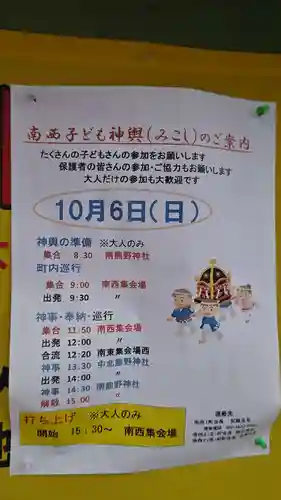 南西子ども神輿(みこし)のご案内
たくさんの子どもさんの参加をお願いします
保護者の皆さんの参加・ご協力もお願いします
大人だけの参加も大歓迎です
10月6日(日)
神輿の準備 ※大人のみ
集合 8:30 南熊野神社
町内巡行
集合 9:00 南西集会場
出発 9:30 〃
神事・奉納・巡行
集合 11:50 南西集会場
出発 12:00 〃
合流 12:20 南東集会場西
神事 13:30 中北熊野神社
出発 14:00 〃
神事 14:30 南熊野神社
解散 15:00
打ち上げ ※大人のみ
開始 15:30~ 南西集会場
連絡先